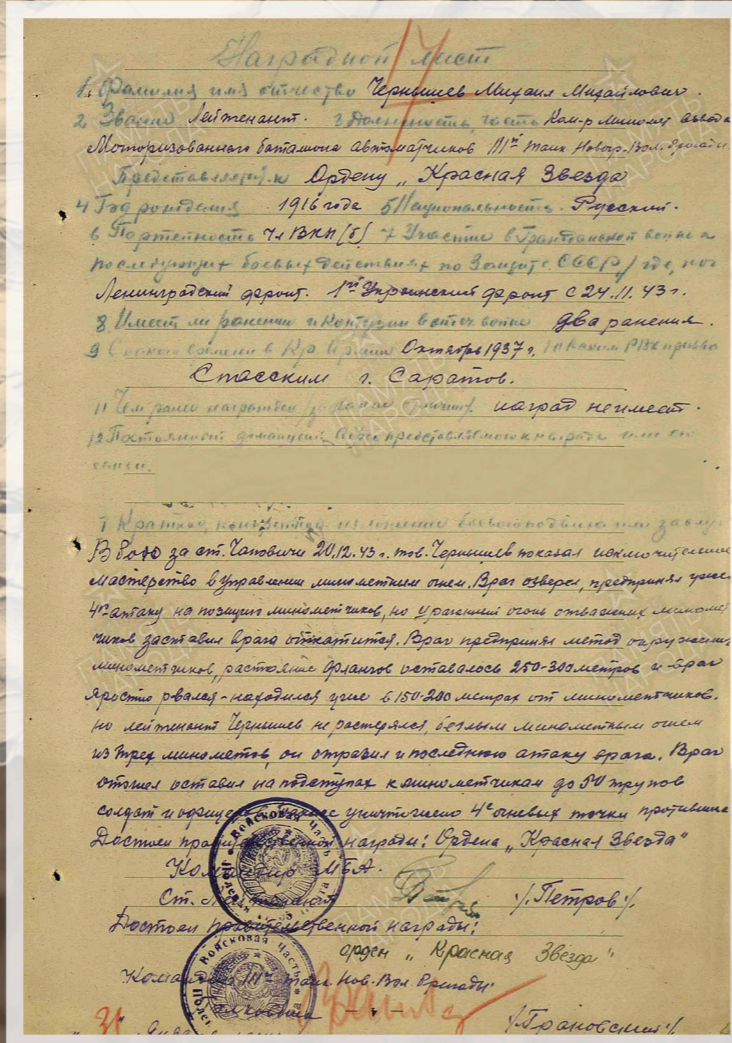 Наградной лист
1. Фамилия имя отчество Чернышев Михаил Михайлович.
2 Звание Лейтенант. 3 Должность, часть Ком-р миномет взвода
Моторизованного батальона автоматчиков 111й танк Новогр-Вол. бригады
Представляется к Ордену „Красная Звезда"
4 Год рождения 1916 года 5 Национальность Русский.
6 Партейность Чл ВКП(б) 7 Участие в гражданской войне и
последующих боевых действиях по защите СССР / где, ког
Ленинградский фронт. 1й Украинский фронт с 24.11.43 г.
8 Имеет ли ранения и контузии в отеч войне два ранения.
9 С какого времени в Кр. Армии Октябрь 1937 г, 10 Каким РВК призва
Спасским г. Саратов.
11 Чем ранее награжден /за какие отличия/ наград не имеет.
12 Постоянный домашний адрес представляемого к награде или его
семьи.
1 Краткое, конкретное изложение боевого подвига или заслуг
В бою за ст. Чаповичи 20.12.43 г. тов. Чернышев показал исключительное
мастерство в управлении минометным огнем. Враг озверел, предпринял уже
4ю атаку на позицию минометчиков, но ураганный огонь отважных миномет
чиков заставил врага откатится. Враг предпринял метод окружения
минометчиков, растояние флангов оставалось 250-300 метров и враг
яростно рвался - находился уже в 150-200 метрах от минометчиков.
но лейтенант Чернышев не растерялся, беглым минометным огнем
из трех минометов, он отразил и последнюю атаку врага. Враг
отошел оставил на подступах к минометчикам до 50 трупов
солдат и офицеров уничтожено 4е огневых точки противника
Достоин правительственной награды: Ордена „Красная Звезда"
Командир МБА.
Ст. Лейтенант /Петров/.
Достоин правительственной награды:
орден „Красная Звезда"
Командир 111й танк Нов-Вол бригады
полковник
"31" января /Грановский/
Войсковая часть
Полевая почта
Войсковая часть
ПАМЯТЬ НАРОДА